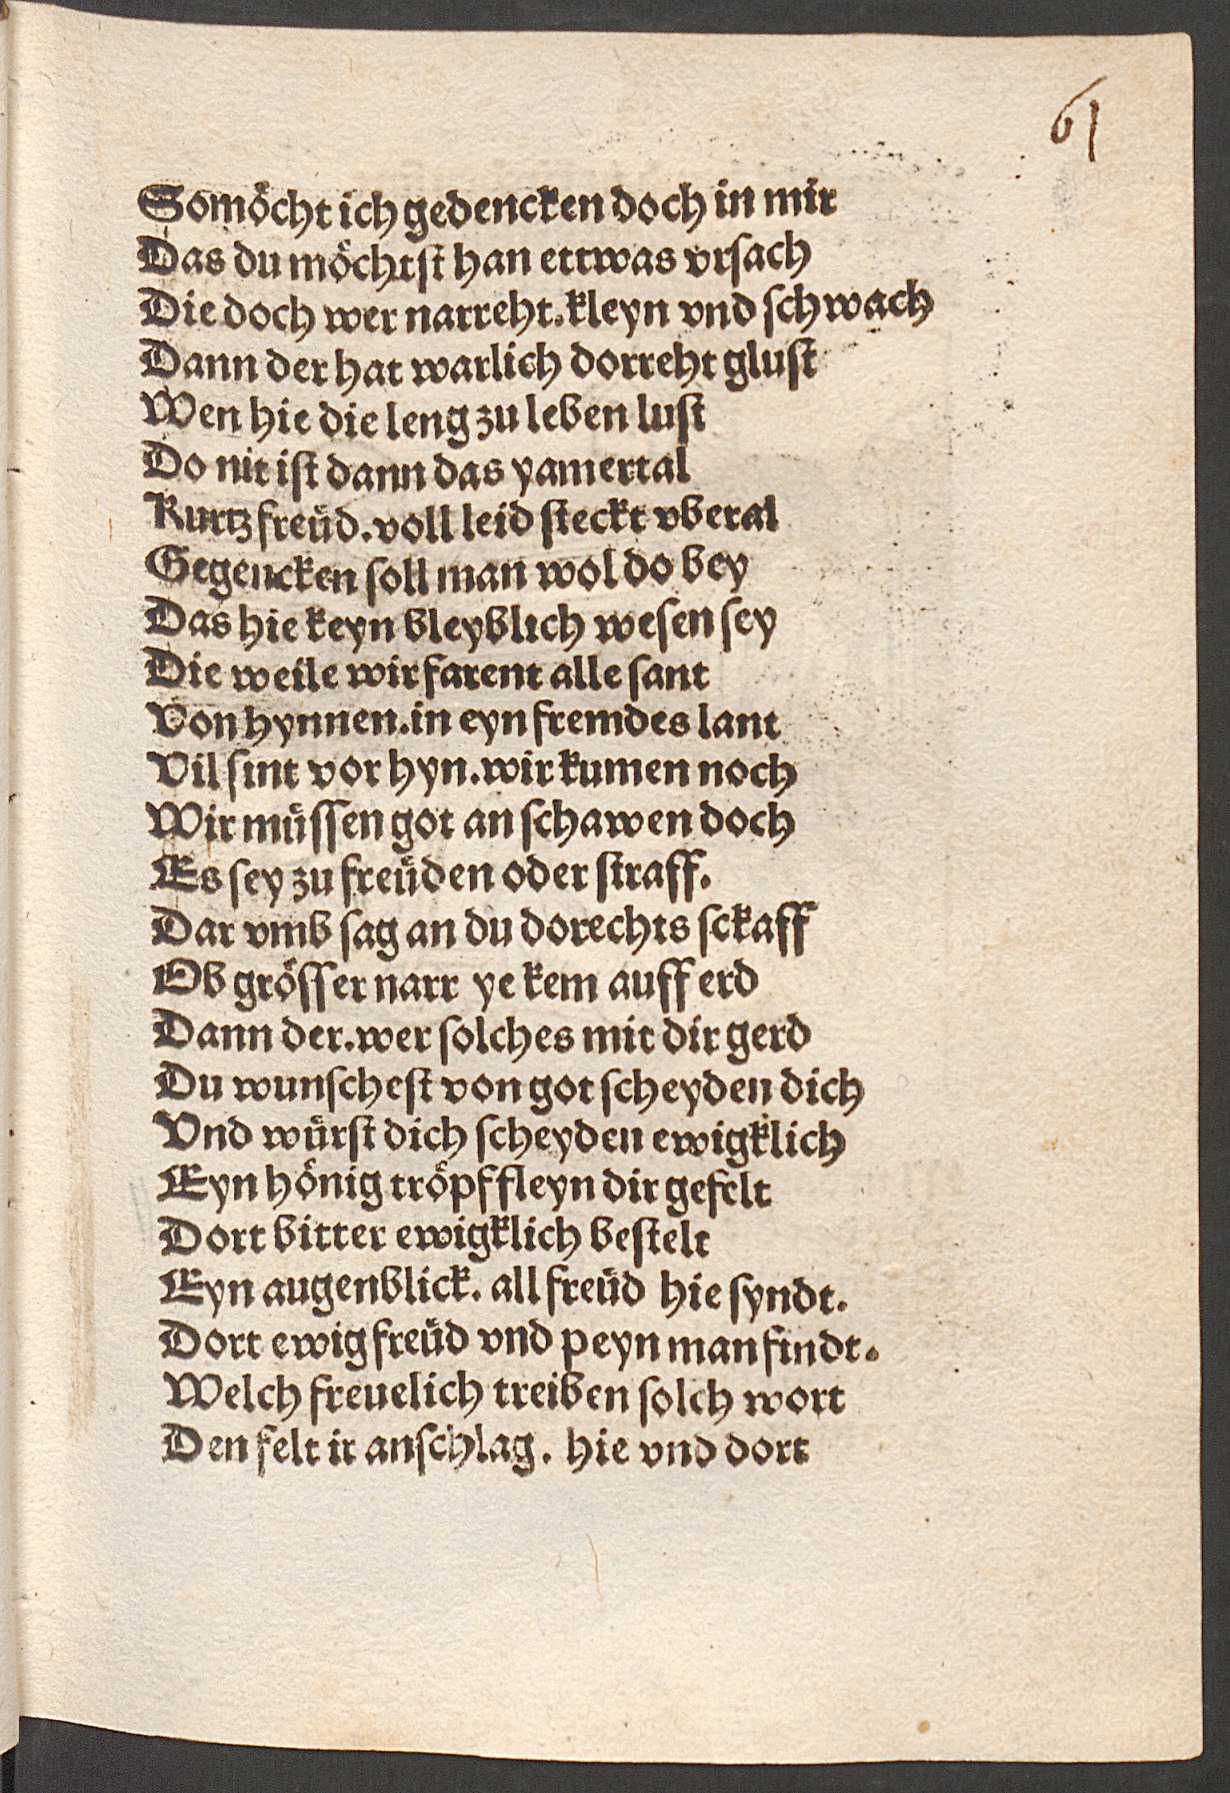 61
So möcht ich gedencken doch in mir
Das du möchtst han ettwas vrsach
Die doch wer narreht. kleyn vnd schwach
Dann der hat warlich dorreht glust
Wen hie die leng zu leben lust
Do nit ist dann das yamertal
Kurtz freüd. voll leid steckt vberal
Gegencken soll man wol do bey
Das hie keyn bleyblich wesen sey
Die weile wir farent alle sant
Von hynnen. in eyn fremdes lant
Vil sint vor hyn. wir kumen noch
Wir müssen got an schawen doch
Es sey zu freüden oder straff.
Dar vmb sag an du dorechts sckaff
Ob grösser narr ye kem auff erd
Dann der. wer solches mit dir gerd
Du wunschest von got scheyden dich
Vnd würst dich scheyden ewigklich
Eyn hönig tröpffleyn dir gefelt
Dort bitter ewigklich bestelt
Eyn augenblick. all freüd hie syndt.
Dort ewig freüd vnd peyn man findt.
Welch freuelich treiben solch wort
Den felt ir anschlag. hie vnd dort